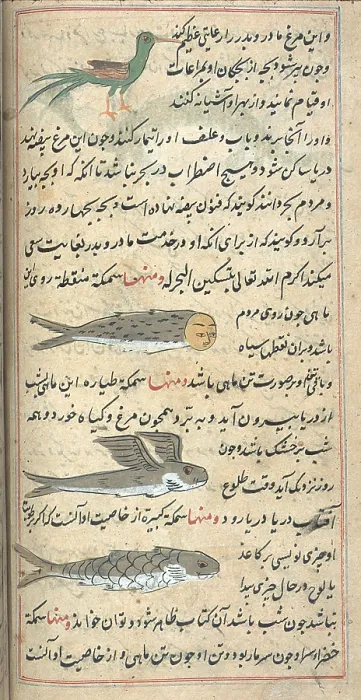 و این مرغ مادر و پدر را رعایتی عظیم کند
و چون پیر شود بچه از بچکان او بمراعات
او قیام نمایند و از بهر او آشیانه کنند
و او را آنجا برند و باب و علف او را تیمار کنند و چون این مرغ بیضه نهد
دریا ساکن شود و هیچ اضطراب در بحر نباشد تا آنکه که او بچه بیارد
و مردم بحر دانند گویند که فنون بیضه نهاده است و بچه بچهارده روز
برآرد و گویند که از برای آنکه او در خدمت مادر و پدر بغایت سعی
میکند اکرم الله تعالی بتسکین البحر له ومنها سمكة منقطة روی این
ماهی چون روی مردم
باشد و بران نقطها سیاه
و باقی بصورت تن ماهی باشد ومنها سمکة طیاره این ماهی شب
از دریا بیرون آید و به پرد همچون مرغ و گیاه خورد و همه
شب بر خشک باشد و چون
روز نزدیک آید وقت طلوع
آفتاب در دریا رود ومنها سمکة کبیرة از خاصیت او آنست که اگر
او چیزی نویسی بر کاغد
یا لوح در حال چیزی پیدا
نباشد چون شب باشد آن کتاب ظاهر شود و توان خواند ومنها سمکة
خضرا سر او چون سر مار بود و تن او چون تن ماهی و از خاصیت او آنست